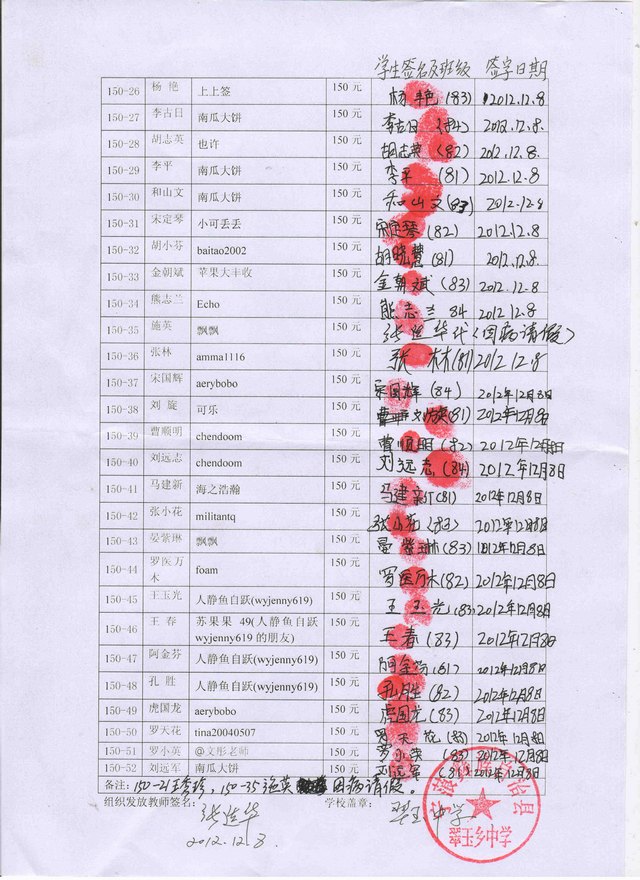 学生签名及班级 签字日期
150-26 杨 艳 上上签 150 元 杨艳 (83) 2012.12.8
150-27 李古日 南瓜大饼 150 元 李古日 (84) 2012.12.8.
150-28 胡志英 也许 150 元 胡志英 (82) 2012.12.8.
150-29 李平 南瓜大饼 150 元 李平 (81) 2012.12.8
150-30 和山文 南瓜大饼 150 元 和山文 (83) 2012.12.8
150-31 宋定琴 小可丢丢 150 元 宋定琴 (82) 2012.12.8
150-32 胡小芬 baitao2002 150 元 胡晓慧 (81) 2012.12.8.
150-33 金朝斌 苹果大丰收 150 元 金朝斌 (83) 2012.12.8
150-34 熊志兰 Echo 150 元 熊志兰 84 2012.12.8
150-35 施英 飘飘 150 元 张连华代(因病请假)
150-36 张林 amma1116 150 元 张林 (81) 2012.12.8
150-37 宋国辉 aerybobo 150 元 宋国辉 (84) 2012年12月8日
150-38 刘 旋 可乐 150 元 刘旋 (81) 2012年12月8日
150-39 曹顺明 chendoom 150 元 曹顺明 (82) 2012年12月8日
150-40 刘远志 chendoom 150 元 刘远志 (84) 2012年12月8日
150-41 马建新 海之浩瀚 150 元 马建新 (81) 2012年12月8日
150-42 张小花 militantq 150 元 张小花 (83) 2012年12月8日
150-43 晏紫琳 飘飘 150 元 晏紫琳 (83) 2012年12月8日
150-44 罗医万木 foam 150 元 罗医万木 (82) 2012年12月8日
150-45 王玉光 人静鱼自跃(wyjenny619) 150 元 王玉光 (83) 2012年12月8日
150-46 王 春 苏果果 49(人静鱼自跃
wyjenny619 的朋友) 150 元 王春 (83) 2012年12月8日
150-47 阿金芬 人静鱼自跃(wyjenny619) 150 元 阿金芬 (81) 2012年12月8日
150-48 孔 胜 人静鱼自跃(wyjenny619) 150 元 孔胜 (82) 2012年12月8日
150-49 虎国龙 aerybobo 150 元 虎国龙 (83) 2012年12月8日
150-50 罗天花 tina20040507 150 元 罗天花 (83) 2012年12月8日
150-51 罗小英 @文彤老师 150 元 罗小英 (83) 2012年12月8日
150-52 刘远军 南瓜大饼 150 元 刘远军 (81) 2012年12月8日
备注: 150-35施英 因病请假。
组织发放教师签名: 张连华 学校盖章: 翠玉中学
2012.12.8.
翠玉乡中学